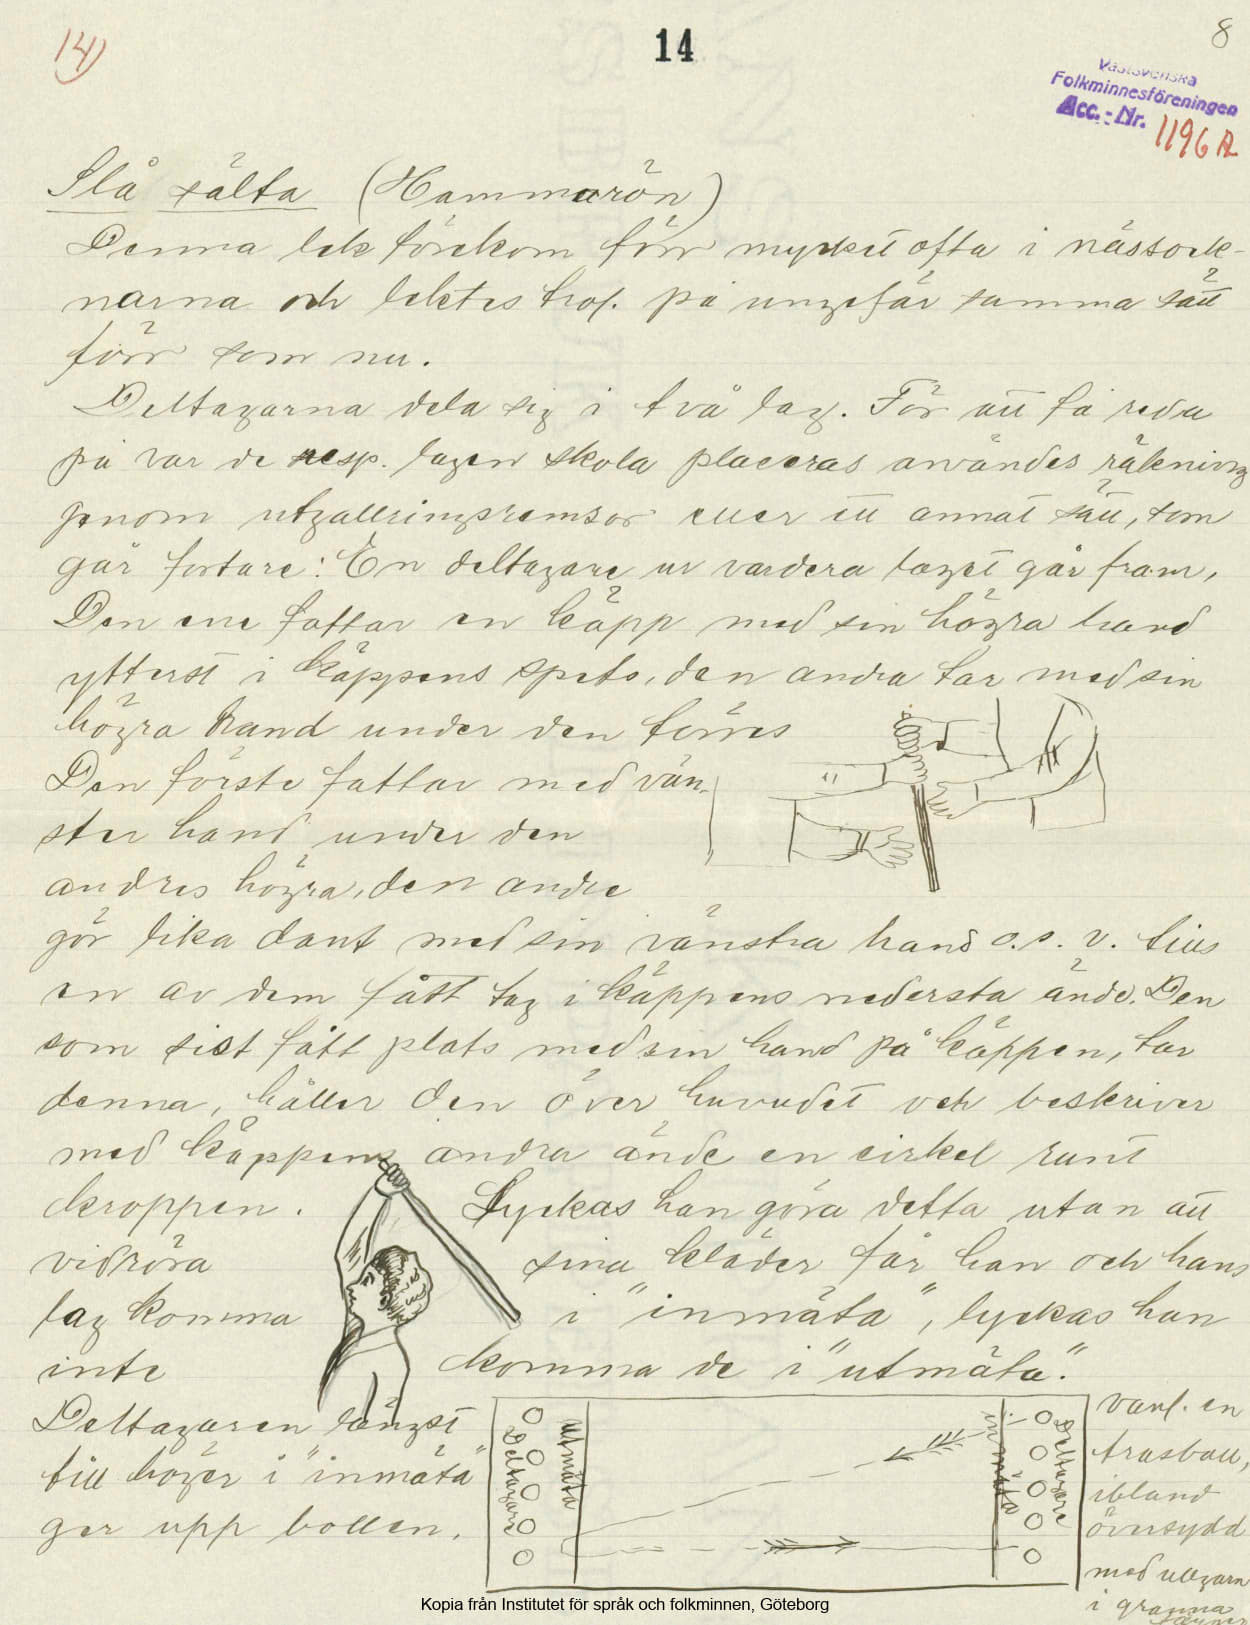 14)
14
8
Västsvenska
Folkminnesföreningen
Acc. - Nr. 1196 A
Slå sälta (Hammarön)
Denna lek förekom förr mycket ofta i nässock-
narna och lektes på ungefär samma sätt
förr som nu.
Deltagarna dela sig i två lag. För att få reda
på var de resp. lagen skola placeras användes räkning
genom utgallringsramsor eller ett annat sätt, som
går fortare: En deltagare ur vardera laget går fram.
Den ene fattar en käpp med sin högra hand
ytterst i käppens spets, den andra tar med sin
högra hand under den förres
Den förste fattar med vän-
ster hand under den
andres högra, den andre
gör lika dant med sin vänstra hand o.s.v. tills
en av dem fått tag i käppens nedersta ände. Den
som sist fått plats med sin hand på käppen, tar
denna, håller den över huvudet och beskriver
med käppens andra ände en cirkel runt
kroppen. Lyckas han göra detta utan att
vidröra sina kläder får han och hans
lag komma i "inmäta", lyckas han
inte komma de i "utmäta".
Deltagaren längst
till höger i "inmäta"
ger upp bollen,
Deltagare
utmäta
inmäta
Deltagare
vanl. en
trasboll,
ibland
översydd
med ullgarn
i granna
färger
Kopia från Institutet för språk och folkminnen, Göteborg